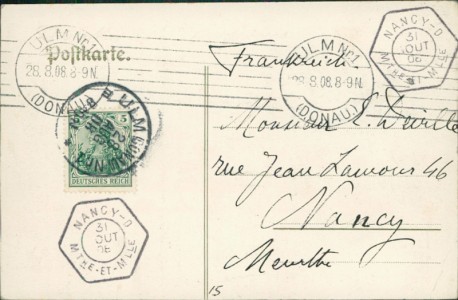 ULM No1.
Postkarte.
28.8.08.8-9N.
(DONAU)
ULM No1.
28.8.08.8-9N.
(DONAU)
NANCY-D
31
OUT
08
MTHE-ET-MLLE
Frankreich
ULM
5
DEUTSCHES REICH
Monsieur L. Déville
rue Jean Lamour 46
Nancy
Meurthe
NANCY-D
31
OUT
08
MTHE-ET-MLLE
15